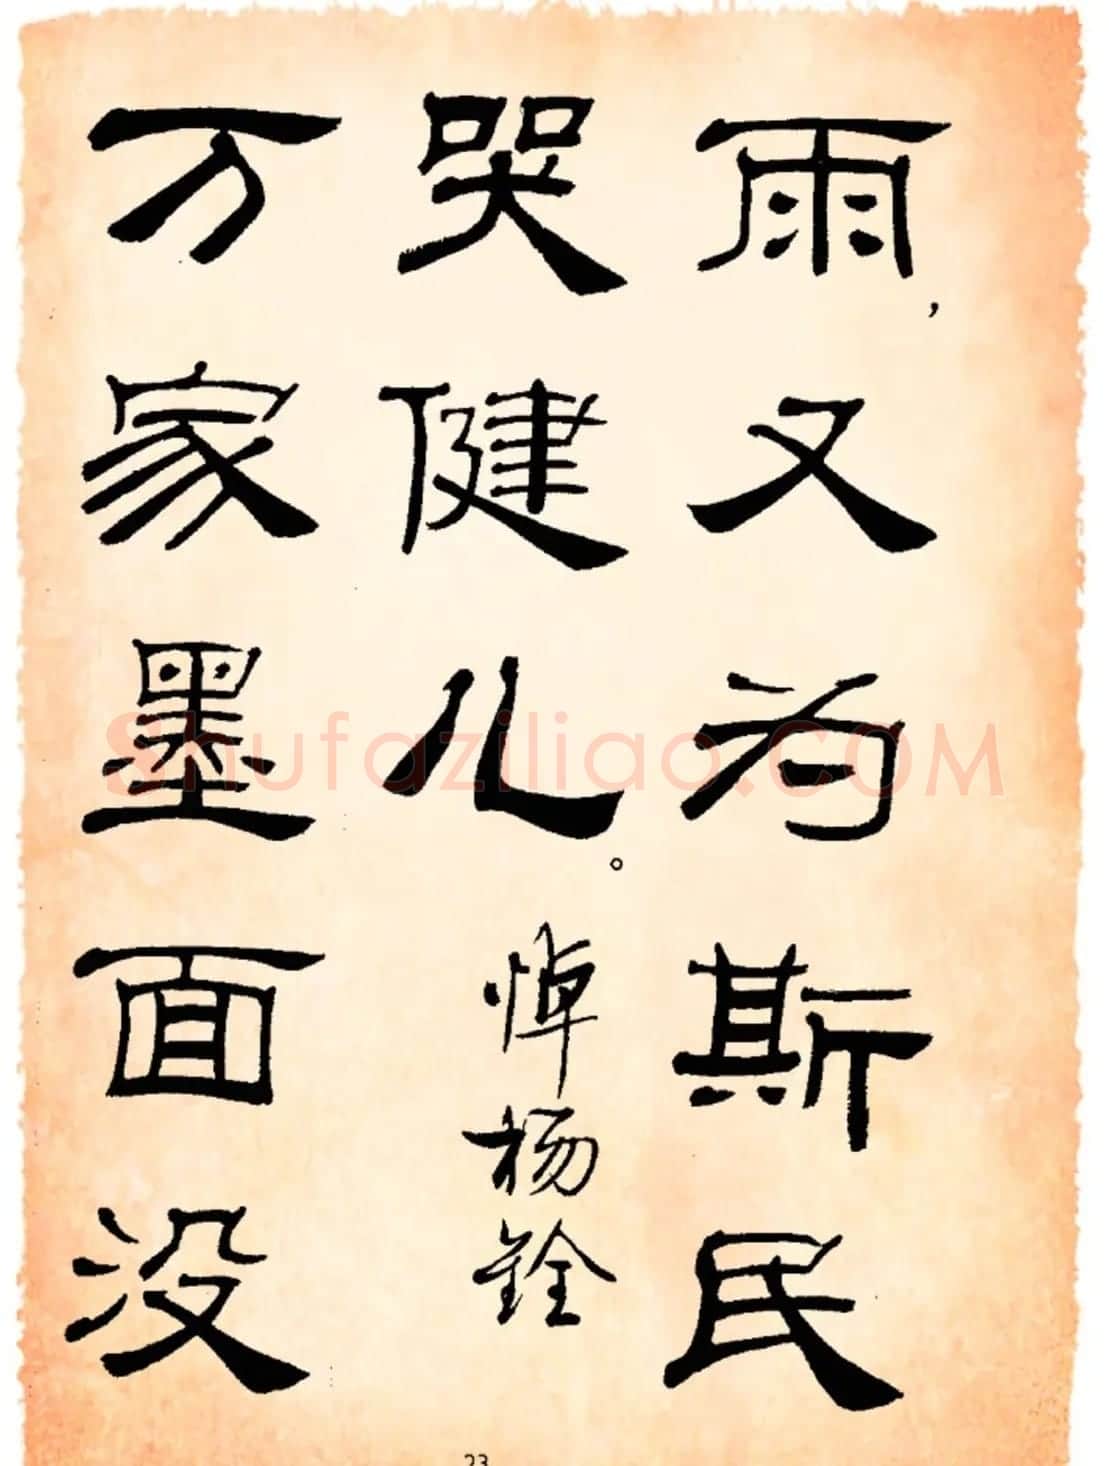 雨，又为斯民
哭健儿。悼杨铨
万家墨面没
Shufaziliao.COM
23